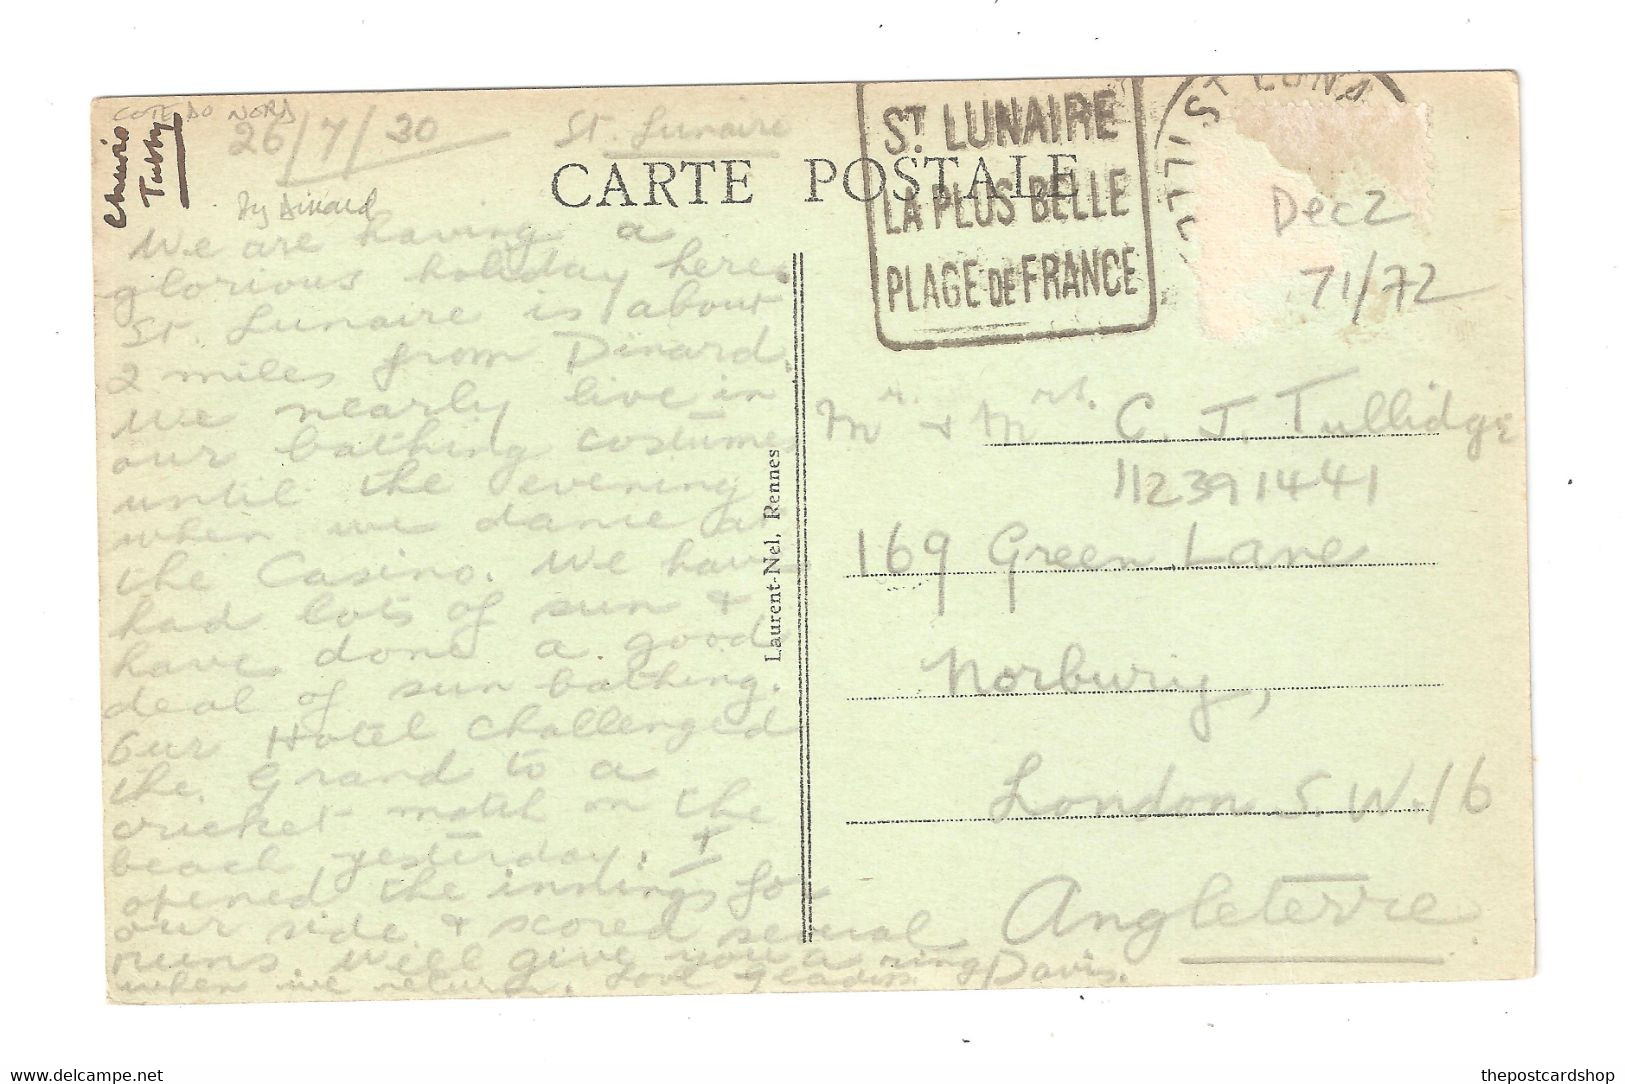 COTE DO NORD
26/7/30 St. Lunaire
By Dinard
Tubby
CARTE POSTALE
ST. LUNAIRE
LA PLUS BELLE
PLAGE DE FRANCE
ST LUNA
ILLE
Dec 2
71/72
We are having a
glorious holiday here.
St. Lunaire is about
2 miles from Dinard.
We nearly live in
our bathing costumes
until the evening
when we dance at
the Casino. We have
had lots of sun &
have done a good
deal of sun bathing.
Our Hotel challenged
the Grand to a
cricket match on the
beach yesterday. I
opened the innings for
our side & scored several
runs. Will give you a ring
when we return. Love Gladys. Davis.
Laurent-Nel, Rennes
Mr. & Mrs. C. J. Tullidge
112391441
169 Green Lane
Norbury,
London S.W.16
Angleterre.
delcampe.net
thepostcardshop